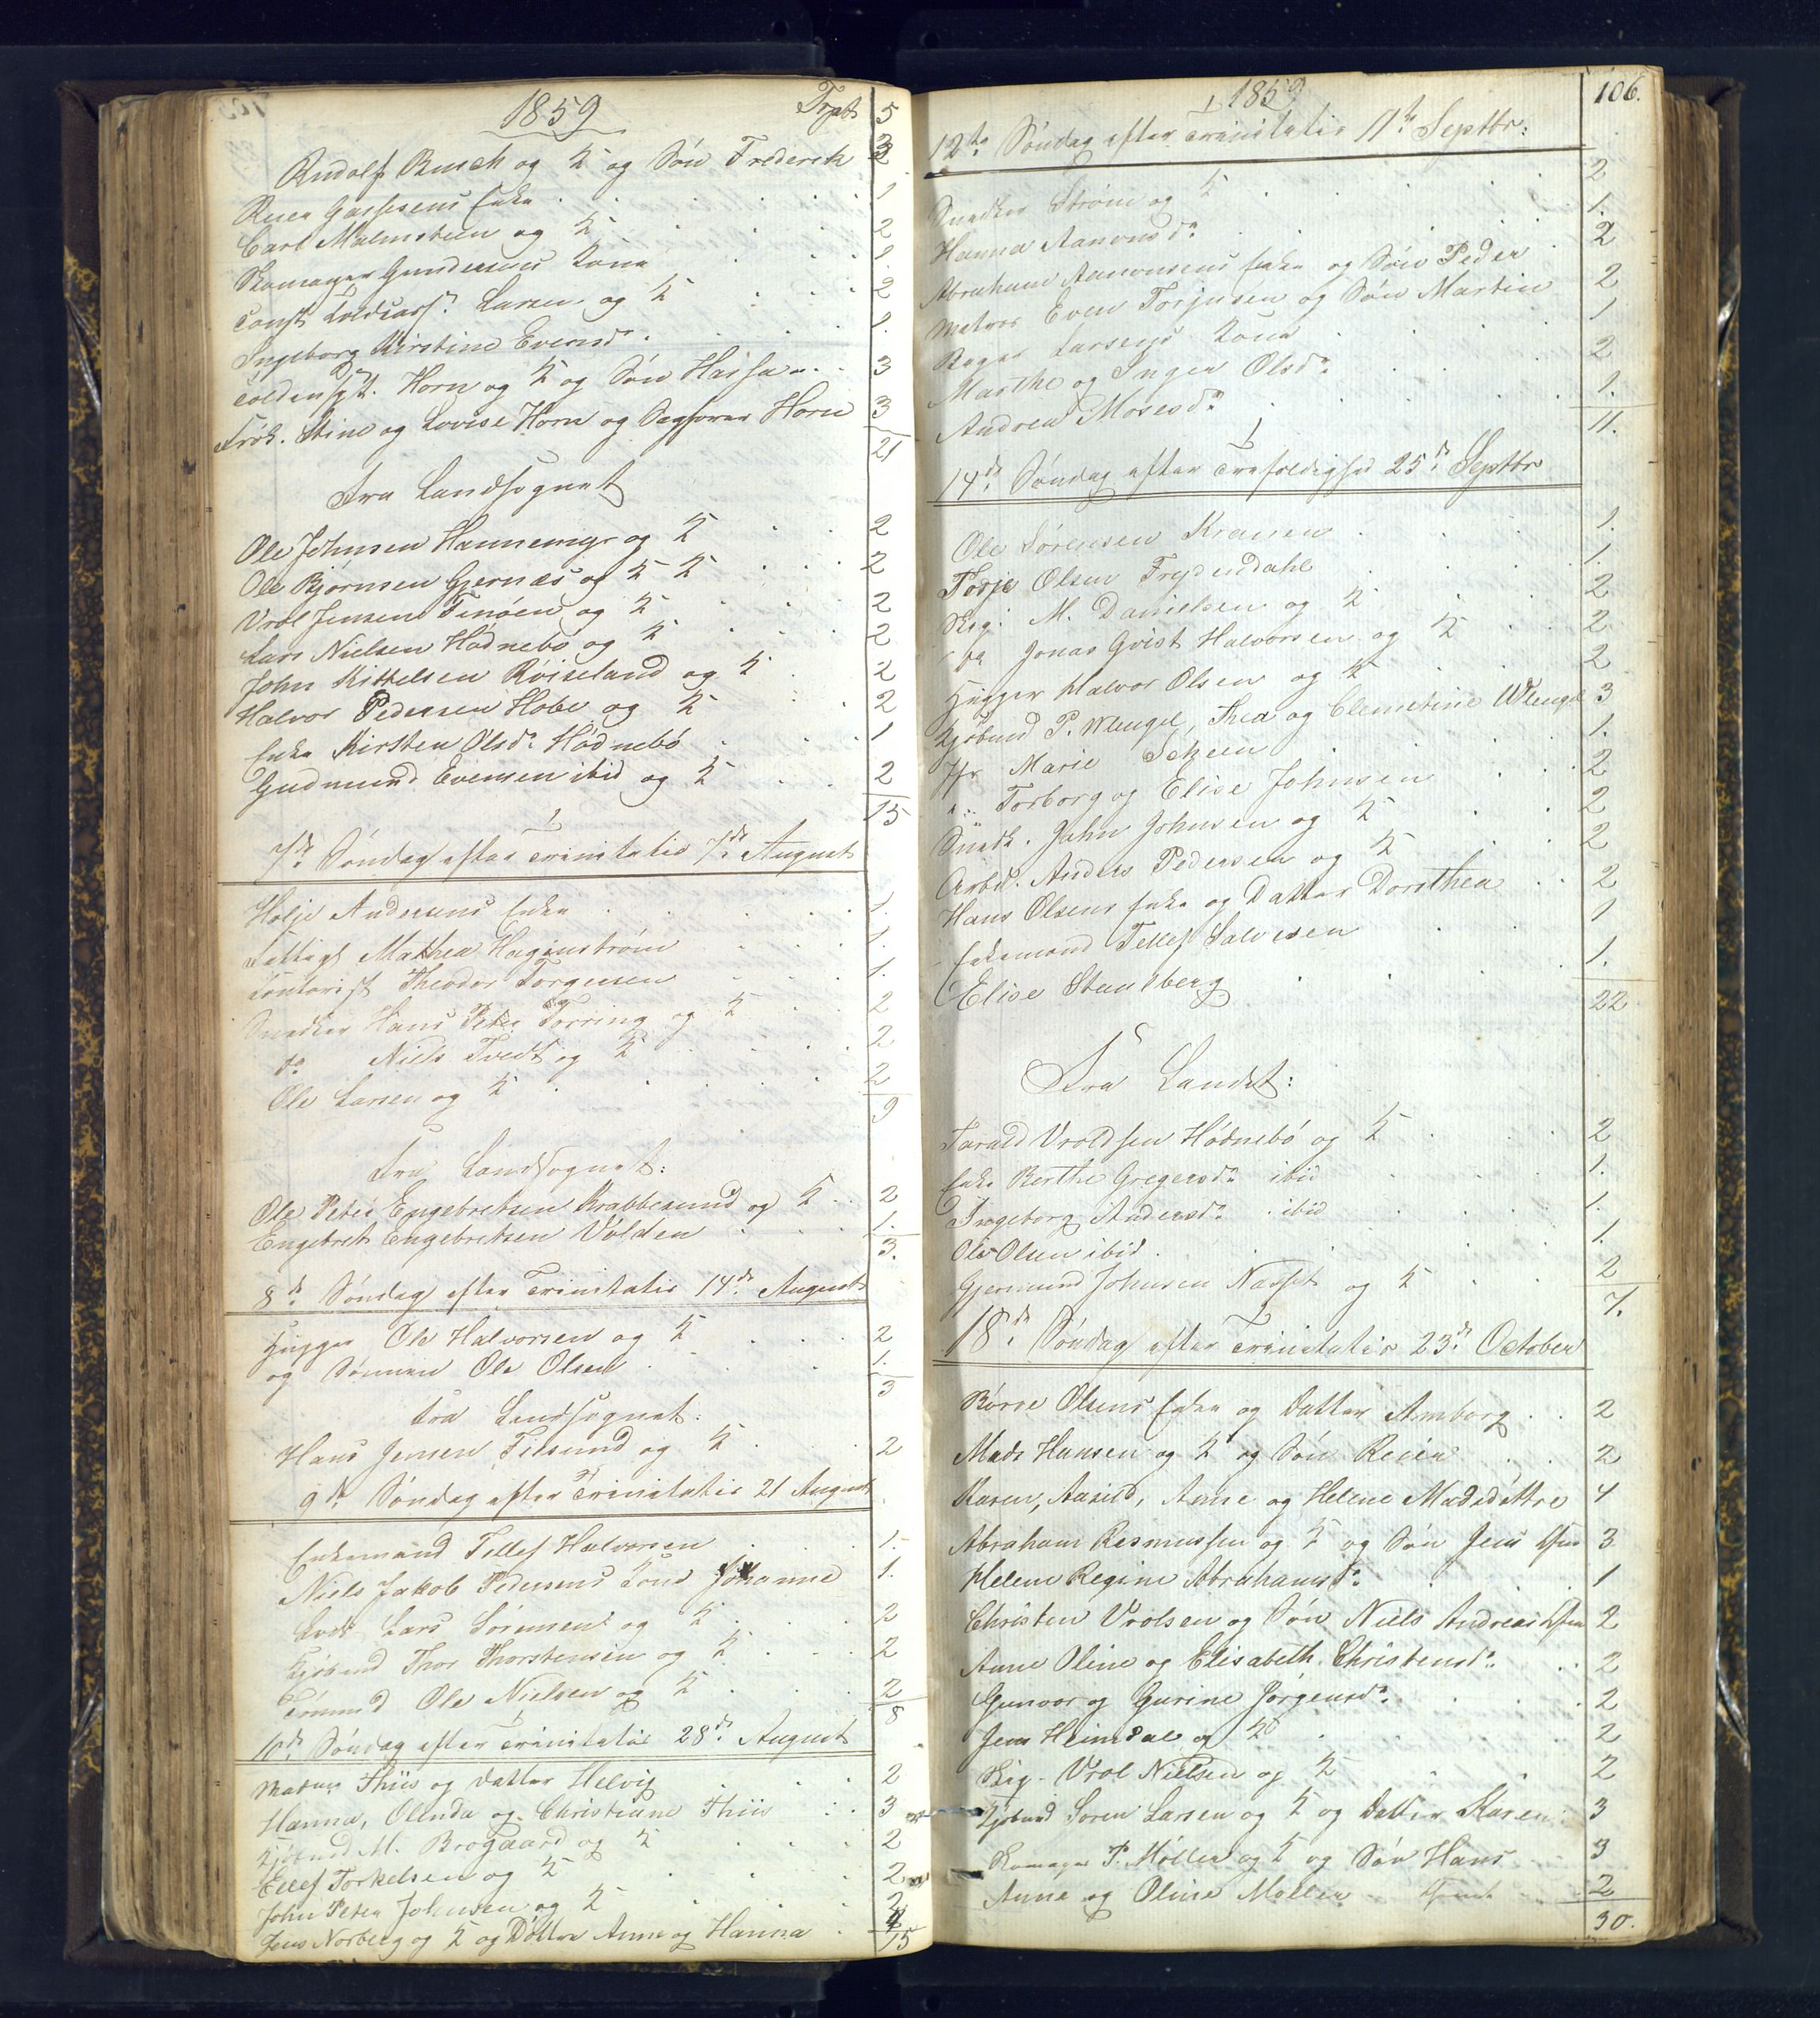 1859
Trpt 5
Rudolf Busch og K og Søn Frederik 3
Enke 1
Carl Malmsteen og K 2
Skomager Gundersens Kone 1
Const. Toldcass. Larsen og K 2
Ingeborg Kirstine Evensd. 1.
Toldinsp. Horn og K og Søn 3
Frøk. Stine og Lovise Horn og Sagfører Horn 3
21
Fra Landsognet
Ole Johnsen Hannemyr og K 2
Ole Bjørnsen Gjernæs og K 2
Vrol Jensen Tinøen og K 2
Lars Nielsen Hødnebø og K 2
John Kittelsen Røiseland og K 2
Halvor Pedersen Hobe og K 2
Enke Kirsten Olsd. Hødnebø 1
Gudmund Evensen ibid og K 2
15
7de Søndag efter Trinitatis 7de August
Holje Andersens Enke 1.
Mathea Haginstrøm 1.
Contorist Theodor Torgersen 1.
Snedker Hans Peter Torring og K 2
do Niels Tvedt og K 2
Ole Larsen og K 2
9
Fra Landsognet:
Ole Peter Engebretsen Krabbesund og K 2
Engebret Engebretsen Volden 1.
3.
8de Søndag efter Trinitatis 14de August
Hugger Ole Halvorsen og K 2
og Sønnen Ole Olsen 1.
3
Fra Landsognet:
Hans Jensen Tilsund og K 2
9de Søndag efter Trinitatis 21 August
Enkemand Tellef Halvorsen 1.
Niels Jakob Pedersens Kone Johanne 1.
Lods Lars Sørensen og K 2
Kjøbmd Thor Thorstensen og K 2
Tømmd Ole Nielsen og K 2
8
10de Søndag efter Trinitatis 28de August
Madam Thiis og Datter Helvig 2
Hanna, Olinda og Christiane Thiis 3
Kjøbmd M. Brogaard og K 2
Ellef Torkelsen og K 2
John Peter Johnsen og K 2
Jens Norberg og K og Døttre Anne og Hanna 4
15
1859
106.
12te Søndag efter Trinitatis 11te Septbr:
Snedker Strøm og K 2
Hanna Aanonsd. 1.
Abraham Aanonsens Enke og Søn Peder 2
Matros Even Torjusen og Søn Martin 2
Bager Larsens Kone 1
Marthe og Inger Olsd. 2
Andrea Mosesd. 1.
11.
14de Søndag efter Trefoldighed 25de Septbr
Ole Sørensen Kranen 1.
Torje Olsen Frydendahl 1.
Skp. M. Danielsen og K 2
do Jonas Gvist Halvorsen og K 2
Hugger Halvor Olsen og K 2
Kjøbmd P. Wlengel, Thea og Clemetine Wlengel 3
Jfr Marie 1.
" Torborg og Elise Johnsen 2
Snedk. John Johnsen og K 2
Arbd. Anders Pedersen og K 2
Hans Olsens Enke og Datter Dorothea 2
Enkemand Tellef Salvesen 1
Elise Staulberg 1.
22
Fra Landet:
Tarald Vroldsen Hødnebø og K 2
Enke Berthe Gregersd. ibid 1.
Ingeborg Andersd. ibid 1.
Ole Olsen ibid 1.
Gjermund Johnsen Næsset og K 2
7.
18de Søndag efter Trinitatis 23de October
Børre Olsens Enke og Datter Amborg 2
Mads Hansen og K og Søn Reier 2
Karen, Aasild, Anne og Helene Madsdøttre 4
Abraham Rasmussen og K og Søn Jens 3
Helene Regine Abrahamsd. 1
Christen Vrolsen og Søn Niels Andreas 2
Anne Oline og Elisabeth Christensd. 2
Gunvor og Gurine Jørgensd. 2
Jens Heimdal og K 2
Skp. Vrol Nielsen og K 2
Kjøbmd Søren Larsen og K og Datter Karen 3
Skomager P. Møller og K og Søn Hans 3
Anne og Oline Møller 2
30.